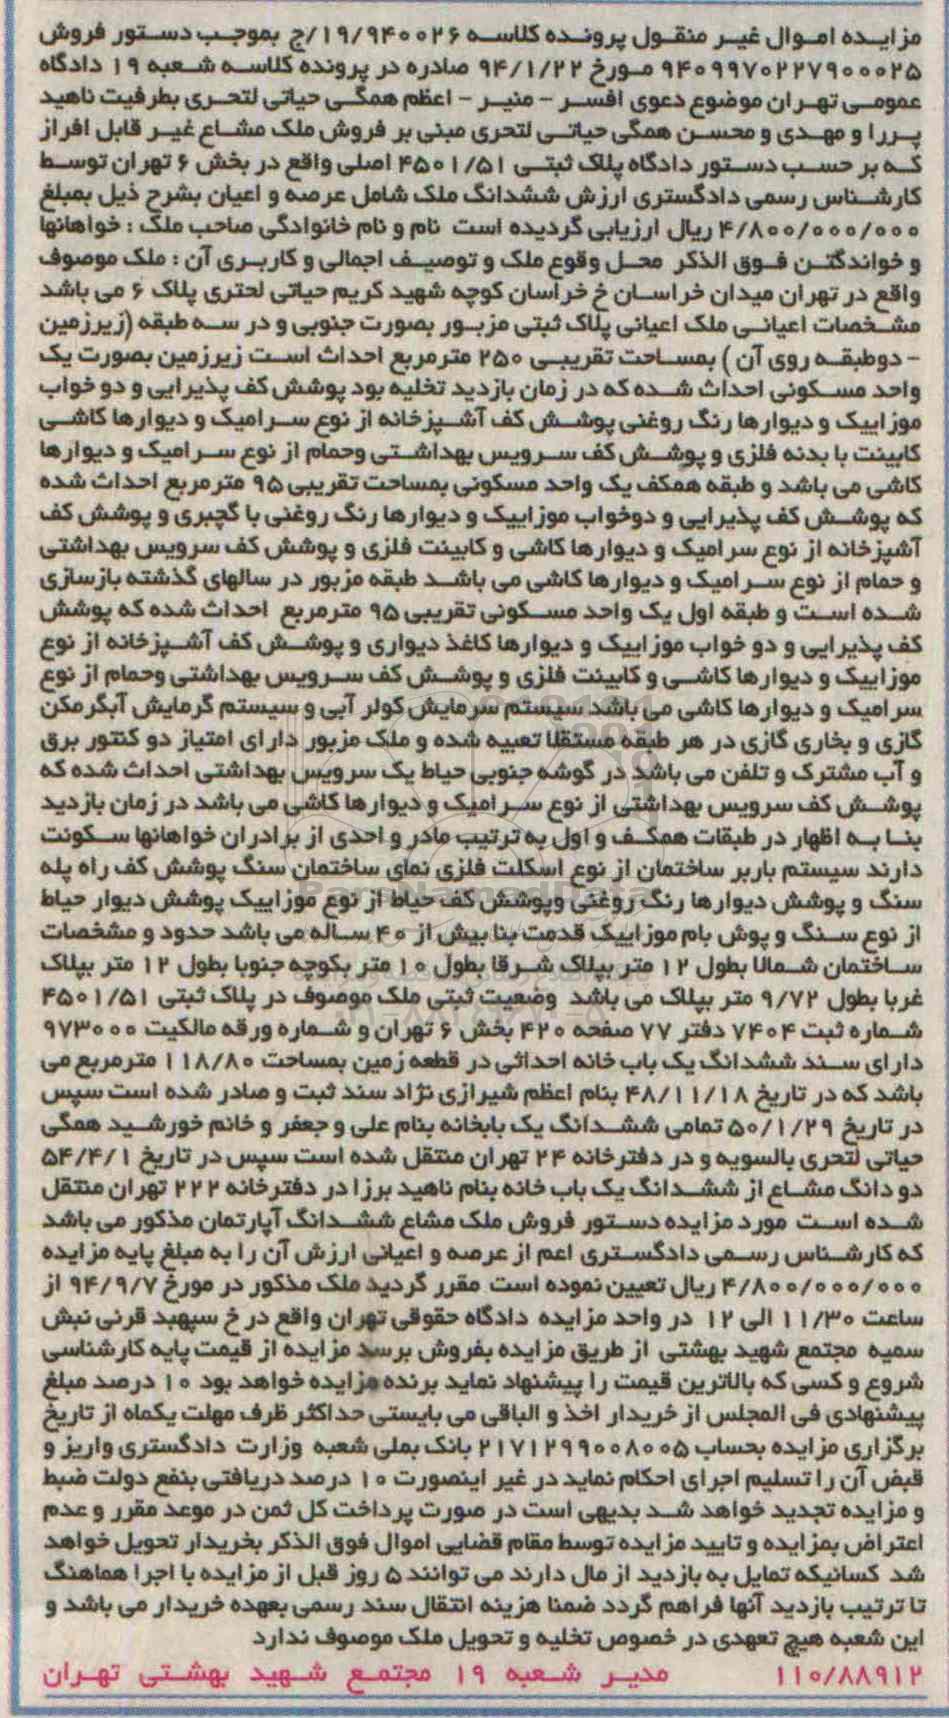 مزایده اموال غیر منقول پرونده کلاسه ۱۹/۹۴۰۰۲۶/ج بموجب دستور فروش
۹۴۰۹۹۷۰۲۲۷۹۰۰۰۲۵ مورخ ۹۴/۱/۲۲ صادره در پرونده کلاسه شعبه ۱۹ دادگاه
عمومی تهران موضوع دعوی افسر - منیر - اعظم همگی حیاتی لتحری بطرفیت ناهید
پررا و مهدی و محسن همگی حیاتی لتحری مبنی بر فروش ملک مشاع غیر قابل افراز
که بر حسب دستور دادگاه پلاک ثبتی ۴۵۰۱/۵۱ اصلی واقع در بخش ۶ تهران توسط
کارشناس رسمی دادگستری ارزش ششدانگ ملک شامل عرصه و اعیان بشرح ذیل بمبلغ
۴/۸۰۰/۰۰۰/۰۰۰ ریال ارزیابی گردیده است نام و نام خانوادگی صاحب ملک : خواهانها
و خواندگتن فوق الذکر محل وقوع ملک و توصیف اجمالی و کاربری آن : ملک موصوف
واقع در تهران میدان خراسان خ خراسان کوچه شهید کریم حیاتی لحتری پلاک ۶ می باشد
مشخصات اعیانی ملک اعیانی پلاک ثبتی مزبور بصورت جنوبی و در سه طبقه (زیرزمین
- دوطبقه روی آن ) بمساحت تقریبی ۲۵۰ مترمربع احداث است زیرزمین بصورت یک
واحد مسکونی احداث شده که در زمان بازدید تخلیه بود پوشش کف پذیرایی و دو خواب
موزاییک و دیوارها رنگ روغنی پوشش کف آشپزخانه از نوع سرامیک و دیوارها کاشی
کابینت با بدنه فلزی و پوشش کف سرویس بهداشتی وحمام از نوع سرامیک و دیوارها
کاشی می باشد و طبقه همکف یک واحد مسکونی بمساحت تقریبی ۹۵ مترمربع احداث شده
که پوشش کف پذیرایی و دوخواب موزاییک و دیوارها رنگ روغنی با گچبری و پوشش کف
آشپزخانه از نوع سرامیک و دیوارها کاشی و کابینت فلزی و پوشش کف سرویس بهداشتی
و حمام از نوع سرامیک و دیوارها کاشی می باشد طبقه مزبور در سالهای گذشته بازسازی
شده است و طبقه اول یک واحد مسکونی تقریبی ۹۵ مترمربع احداث شده که پوشش
کف پذیرایی و دو خواب موزاییک و دیوارها کاغذ دیواری و پوشش کف آشپزخانه از نوع
موزاییک و دیوارها کاشی و کابینت فلزی و پوشش کف سرویس بهداشتی وحمام از نوع
سرامیک و دیوارها کاشی می باشد سیستم سرمایش کولر آبی و سیستم گرمایش آبگرمکن
گازی و بخاری گازی در هر طبقه مستقلا تعبیه شده و ملک مزبور دارای امتیاز دو کنتور برق
و آب مشترک و تلفن می باشد در گوشه جنوبی حیاط یک سرویس بهداشتی احداث شده که
پوشش کف سرویس بهداشتی از نوع سرامیک و دیوارها کاشی می باشد در زمان بازدید
بنا به اظهار در طبقات همکف و اول به ترتیب مادر و احدی از برادران خواهانها سکونت
دارند سیستم باربر ساختمان از نوع اسکلت فلزی نمای ساختمان سنگ پوشش کف راه پله
سنگ و پوشش دیوارها رنگ روغنی وپوشش کف حیاط از نوع موزاییک پوشش دیوار حیاط
از نوع سنگ و پوش بام موزاییک قدمت بنا بیش از ۴۰ ساله می باشد حدود و مشخصات
ساختمان شمالا بطول ۱۲ متر بپلاک شرقا بطول ۱۰ متر بکوچه جنوبا بطول ۱۲ متر بپلاک
غربا بطول ۹/۷۲ متر بپلاک می باشد وضعیت ثبتی ملک موصوف در پلاک ثبتی ۴۵۰۱/۵۱
شماره ثبت ۷۴۰۴ دفتر ۷۷ صفحه ۴۲۰ بخش ۶ تهران و شماره ورقه مالکیت ۹۷۳۰۰۰
دارای سند ششدانگ یک باب خانه احداثی در قطعه زمین بمساحت ۱۱۸/۸۰ مترمربع می
باشد که در تاریخ ۴۸/۱۱/۱۸ بنام اعظم شیرازی نژاد سند ثبت و صادر شده است سپس
در تاریخ ۵۰/۱/۲۹ تمامی ششدانگ یک بابخانه بنام علی و جعفر و خانم خورشید همگی
حیاتی لتحری بالسویه و در دفترخانه ۲۴ تهران منتقل شده است سپس در تاریخ ۵۴/۴/۱
دو دانگ مشاع از ششدانگ یک باب خانه بنام ناهید برزا در دفترخانه ۲۲۲ تهران منتقل
شده است مورد مزایده دستور فروش ملک مشاع ششدانگ آپارتمان مذکور می باشد
که کارشناس رسمی دادگستری اعم از عرصه و اعیانی ارزش آن را به مبلغ پایه مزایده
۴/۸۰۰/۰۰۰/۰۰۰ ریال تعیین نموده است مقرر گردید ملک مذکور در مورخ ۹۴/۹/۷ از
ساعت ۱۱/۳۰ الی ۱۲ در واحد مزایده دادگاه حقوقی تهران واقع در خ سپهبد قرنی نبش
سمیه مجتمع شهید بهشتی از طریق مزایده بفروش برسد مزایده از قیمت پایه کارشناسی
شروع و کسی که بالاترین قیمت را پیشنهاد نماید برنده مزایده خواهد بود ۱۰ درصد مبلغ
پیشنهادی فی المجلس از خریدار اخذ و الباقی می بایستی حداکثر ظرف مهلت یکماه از تاریخ
برگزاری مزایده بحساب ۲۱۷۱۲۹۹۰۰۸۰۰۵ بانک بملی شعبه وزارت دادگستری واریز و
قبض آن را تسلیم اجرای احکام نماید در غیر اینصورت ۱۰ درصد دریافتی بنفع دولت ضبط
و مزایده تجدید خواهد شد بدیهی است در صورت پرداخت کل ثمن در موعد مقرر و عدم
اعتراض بمزایده و تایید مزایده توسط مقام قضایی اموال فوق الذکر بخریدار تحویل خواهد
شد کسانیکه تمایل به بازدید از مال دارند می توانند ۵ روز قبل از مزایده با اجرا هماهنگ
تا ترتیب بازدید آنها فراهم گردد ضمنا هزینه انتقال سند رسمی بعهده خریدار می باشد و
این شعبه هیچ تعهدی در خصوص تخلیه و تحویل ملک موصوف ندارد
۱۱۰/۸۸۹۱۲ مدیر شعبه ۱۹ مجتمع شهید بهشتی تهران
ParsNamadData